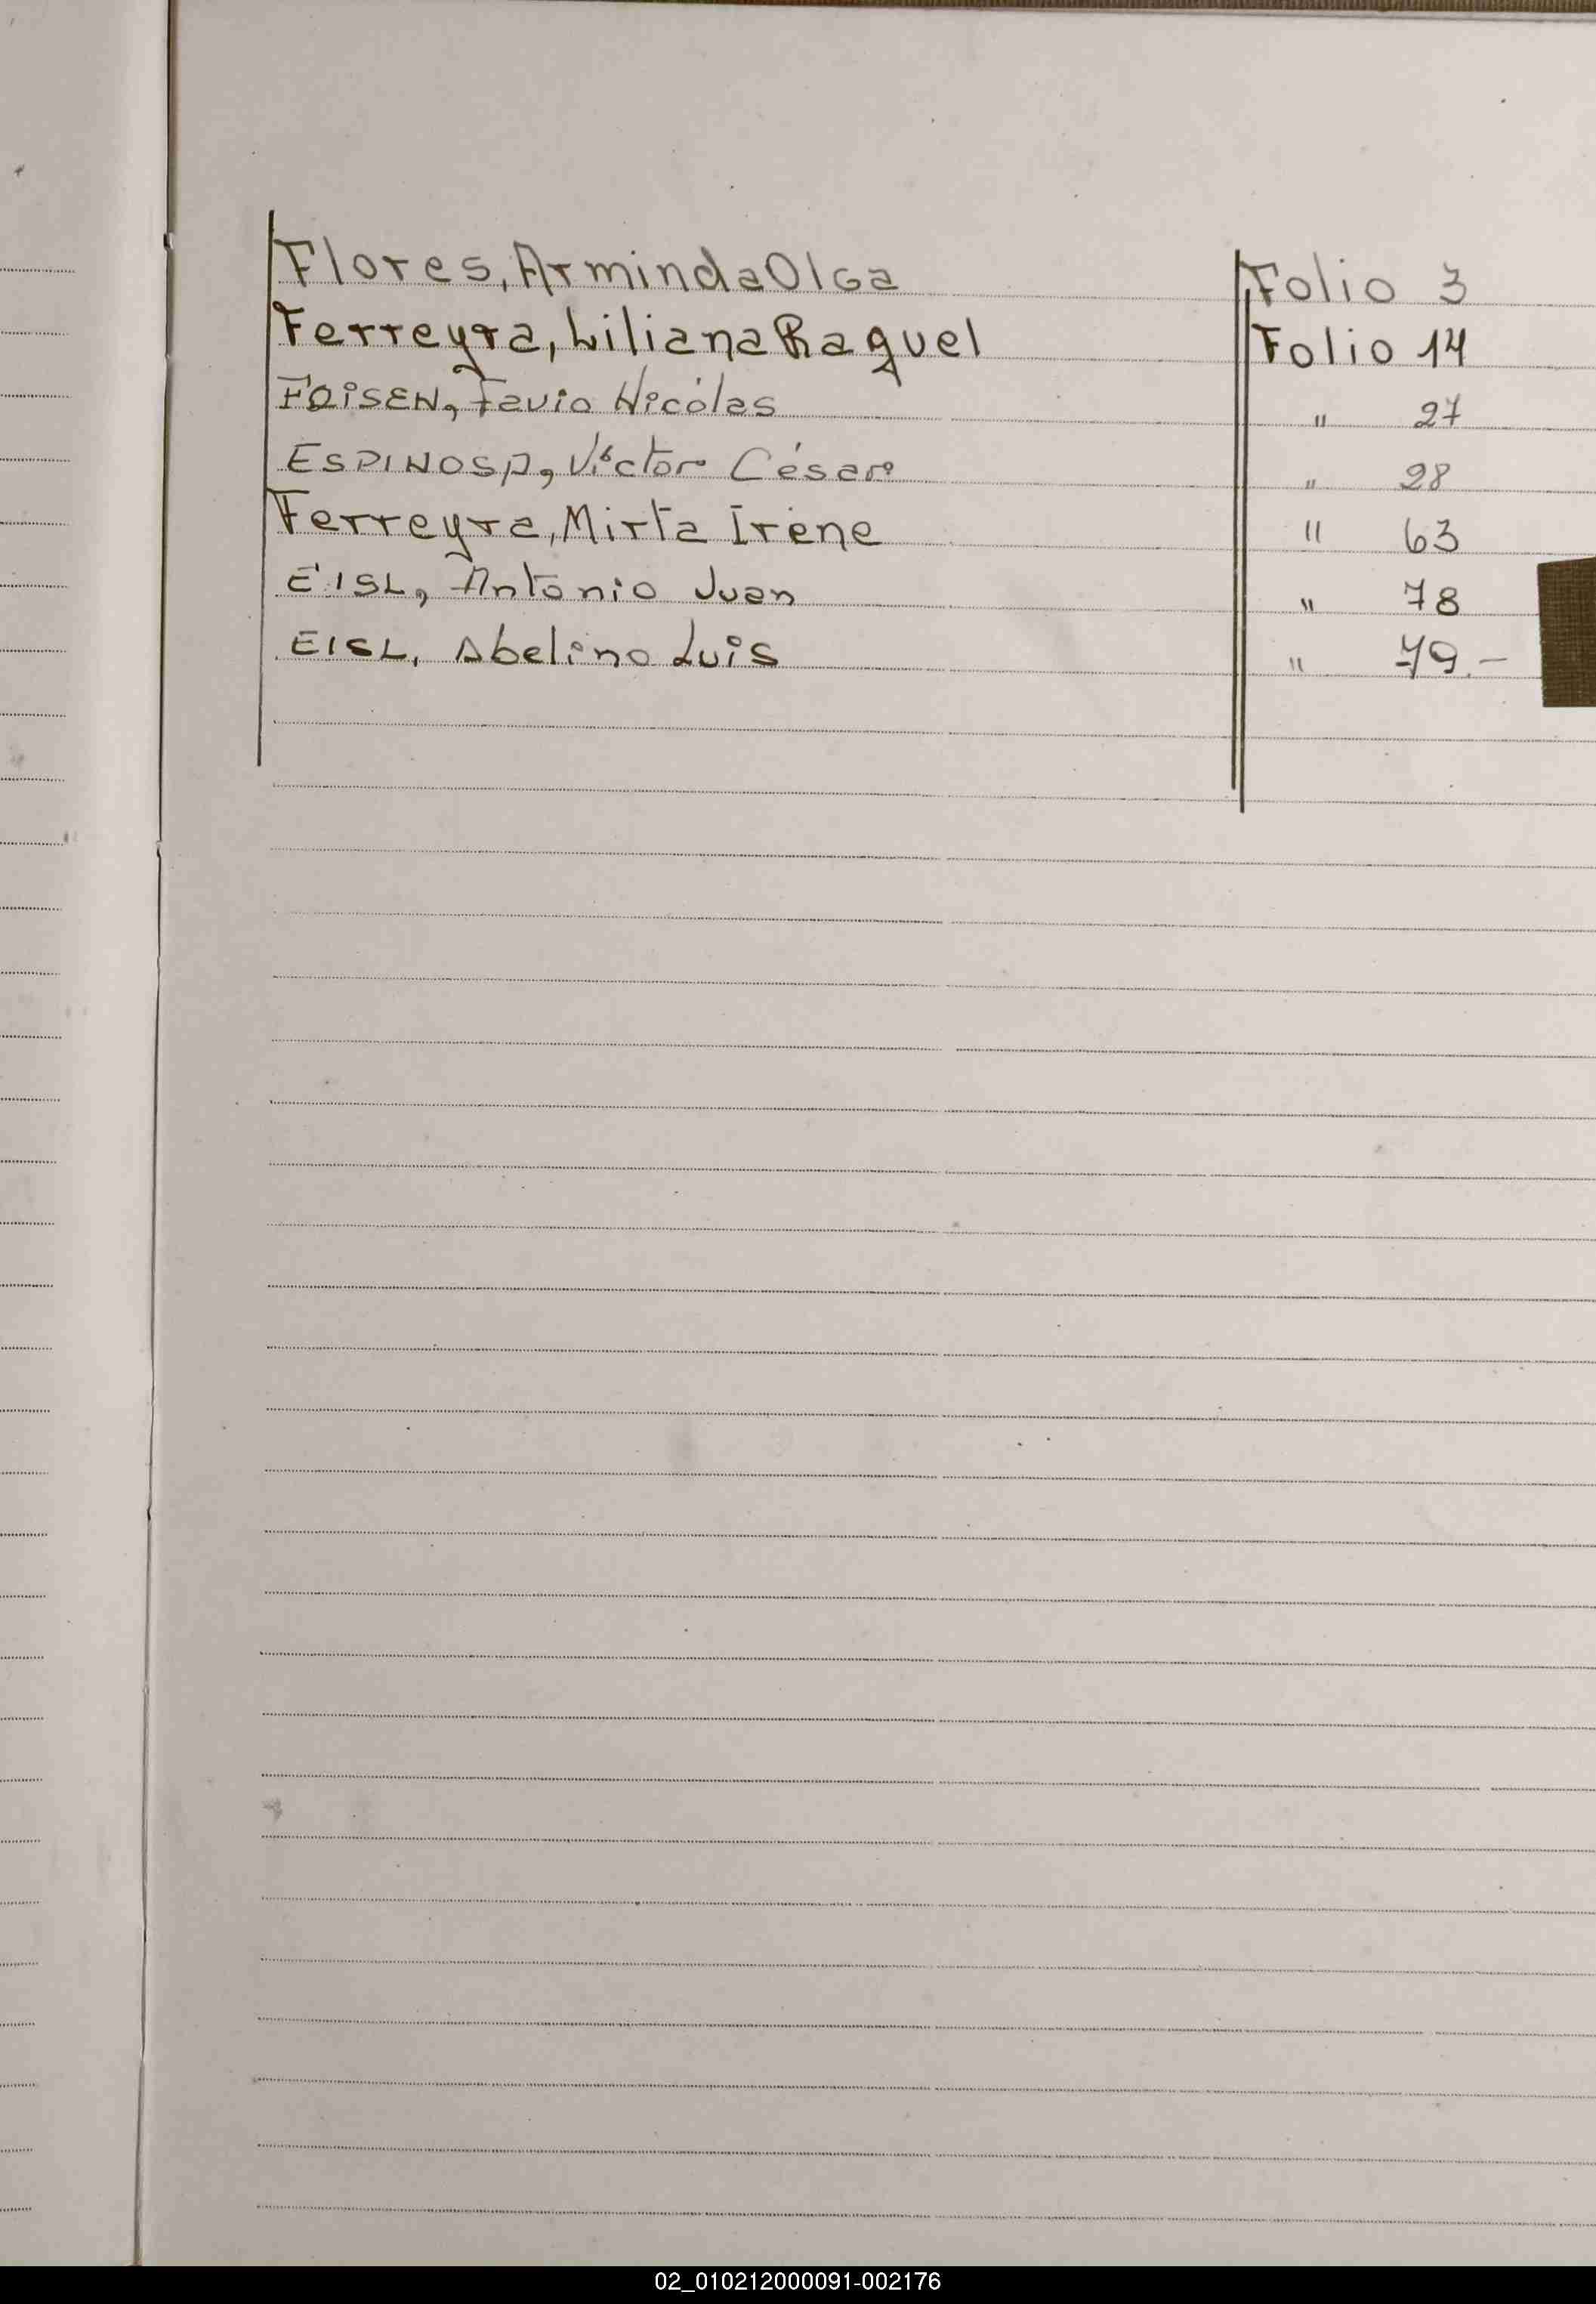 Flores, Arminda Olga Folio 3
Ferreyra, Liliana Raquel Folio 14
FOISEN, Favio Nicólas " 27
ESPINOSA, Víctor César " 28
Ferreyra, Mirta Irene " 63
EISL, Antonio Juan " 78
EISL, Abelino Luis " 79.-
02_010212000091-002176